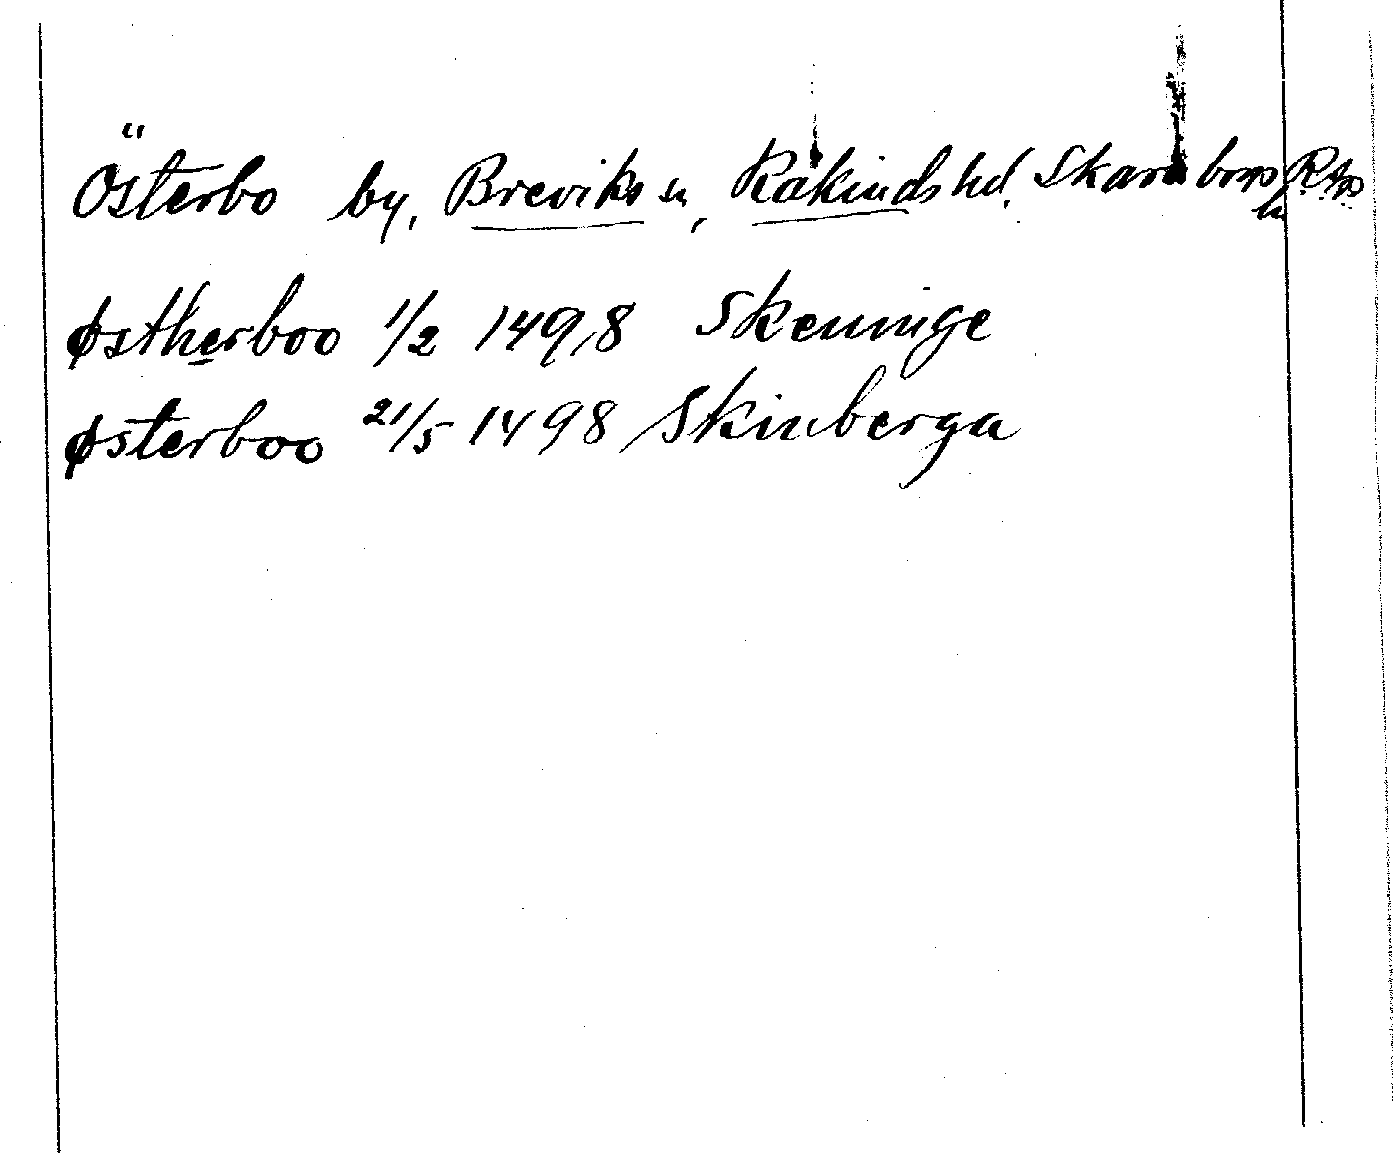 Österbo by, Breviks sn, Kåkinds hd. Skaraborgs ln RAp
Østherboo 1/2 1498 Skeninge
Østerboo 21/5 1498 Skinberga